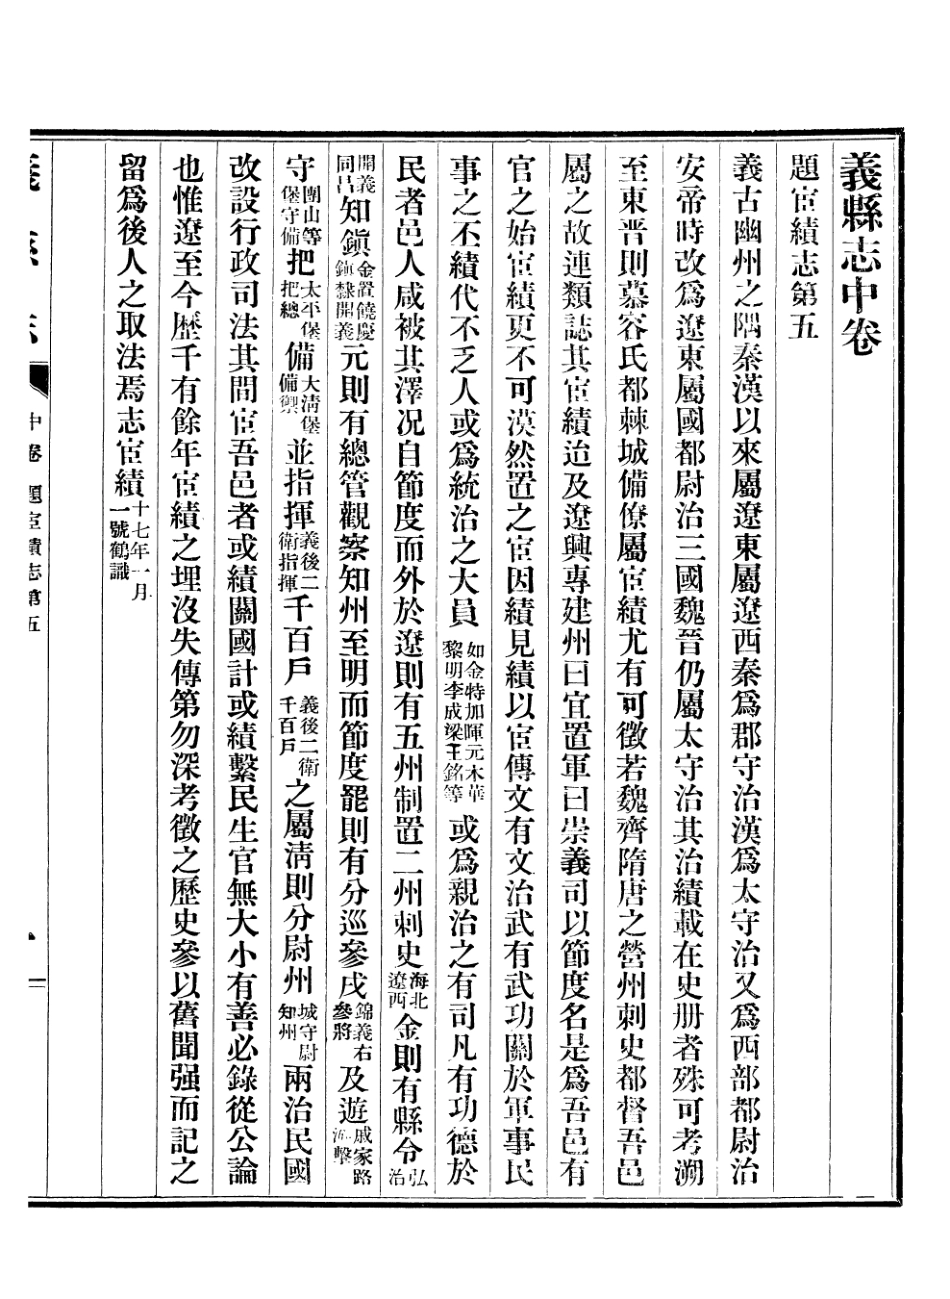 義縣志中卷
題宦績志第五
義古幽州之隅秦漢以來屬遼東屬遼西秦爲郡守治漢爲太守治又爲西部都尉治
安帝時改爲遼東屬國都尉治三國魏晉仍屬太守治其治績載在史册者殊可考溯
至東晋則慕容氏都棘城備僚屬宦績尤有可徵若魏齊隋唐之營州刺史都督吾邑
屬之故連類誌其宦績迨及遼興專建州曰宜置軍曰崇義司以節度名是爲吾邑有
官之始宦績更不可漠然置之宦因績見績以宦傳文有文治武有武功關於軍事民
事之丕績代不乏人或爲統治之大員如金特加暉元木華黎明李成梁王銘等或爲親治之有司凡有功德於
民者邑人咸被其澤况自節度而外於遼則有五州制置二州刺史海北遼西金則有縣令弘治
開義同昌知鎭金置饒慶鎭隸開義元則有總管觀察知州至明而節度罷則有分巡參戍錦義右參將及遊戚家路擊
守團山等堡守備把太平堡把總備大淸堡備禦並指揮義後二衛指揮千百戶義後二衛千百戶之屬淸則分尉州城守尉知州兩治民國
改設行政司法其間宦吾邑者或績關國計或績繫民生官無大小有善必錄從公論
也惟遼至今歷千有餘年宦績之埋沒失傳第勿深考徵之歷史參以舊聞强而記之
留爲後人之取法焉志宦績十七年一月一號鶴識
義縣志 中卷 題宦績志第五 一